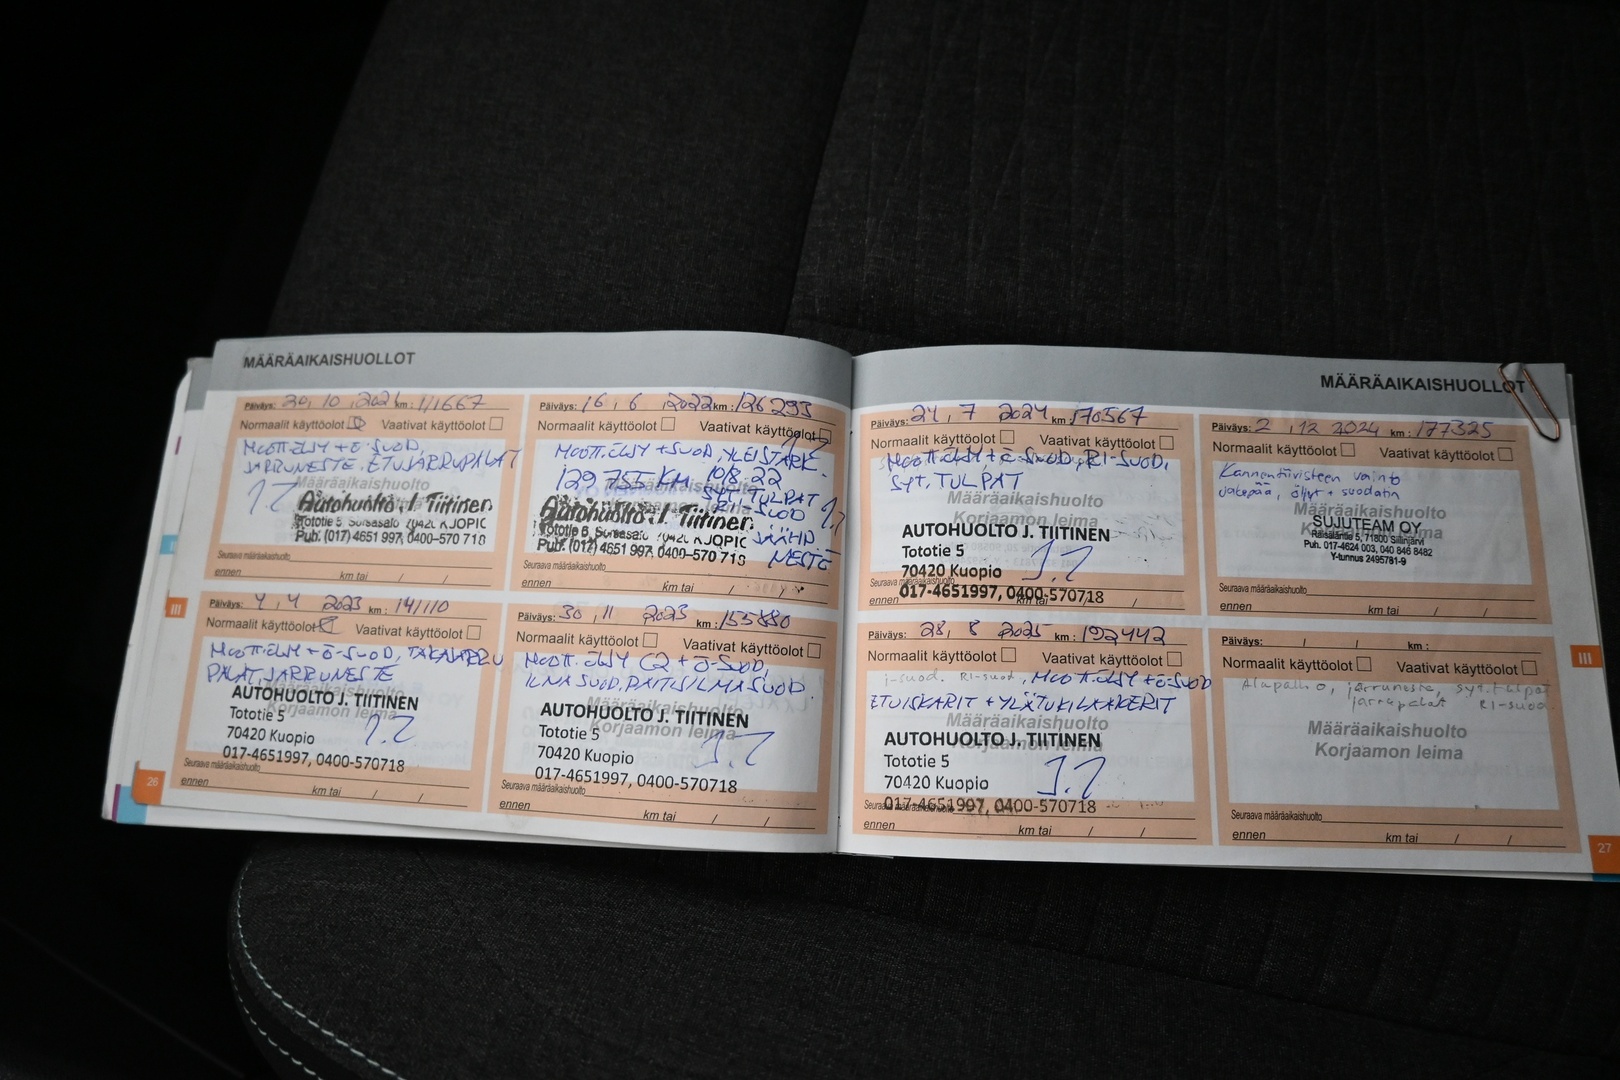 MÄÄRÄAIKAISHUOLLOT
Päiväys: 20, 10, 2021 km: 111667
Normaalit käyttöolot Vaativat käyttöolot
MOOTT.ÖLJY + Ö-SUOD,
JARRUNESTE. ETUJARRUPALAT
Määräaikaishuolto
Autohuolto J. Tiitinen
Tototie 5, Sorsasalo 70420 KUOPIO
Puh. (017) 4651 997, 0400-570 718
Seuraava määräaikaishuolto
ennen km tai / /
Päiväys: 16, 6, 2022 km: 126293
Normaalit käyttöolot Vaativat käyttöolot
MOOTT.ÖLJY + SUOD, YLEISTARK.
129755 KM 10/8.22
SYT.TULPAT
RI-SUOD
Autohuolto J. Tiitinen
Tototie 5, Sorsasalo 70420 KUOPIO
Puh. (017) 4651 997, 0400-570 718
JÄÄHD
NESTE
Seuraava määräaikaishuolto
ennen km tai / /
Päiväys: 4, 4 2023 km: 141110
Normaalit käyttöolot Vaativat käyttöolot
MOOTT.ÖLJY + Ö-SUOD, TAKAJARRU
PALAT, JARRUNESTE
Määräaikaishuolto
Korjaamon leima
AUTOHUOLTO J. TIITINEN
Tototie 5
70420 Kuopio
017-4651997, 0400-570718
Seuraava määräaikaishuolto
ennen km tai / /
26
Päiväys: 30, 11 2023 km: 155880
Normaalit käyttöolot Vaativat käyttöolot
MOOTT. ÖLJY C2 + Ö-SUOD,
ILMASUOD, RAITISILMASUOD.
Määräaikaishuolto
Korjaamon leima
AUTOHUOLTO J. TIITINEN
Tototie 5
70420 Kuopio
017-4651997, 0400-570718
Seuraava määräaikaishuolto
ennen km tai / /
III
MÄÄRÄAIKAISHUOLLOT
Päiväys: 24, 7 2024 km: 170567
Normaalit käyttöolot Vaativat käyttöolot
MOOTT.ÖLJY + Ö-SUOD, RI-SUOD,
SYT, TULPAT
Määräaikaishuolto
Korjaamon leima
AUTOHUOLTO J. TIITINEN
Tototie 5
70420 Kuopio
017-4651997, 0400-570718
Seuraava määräaikaishuolto
ennen km tai / /
Päiväys: 2, 12 2024 km: 177325
Normaalit käyttöolot Vaativat käyttöolot
Kannentiivisteen vaihto
jakopää, öljyt + suodatin
Määräaikaishuolto
Korjaamon leima
SUJUTEAM OY
Räisäläntie 5, 71800 Siilinjärvi
Puh. 017-4624 003, 040 846 8482
Y-tunnus 2495781-9
Seuraava määräaikaishuolto
ennen km tai / /
Päiväys: 28, 8 2025 km: 192442
Normaalit käyttöolot Vaativat käyttöolot
i-suod. RI-suod, MOOTT.ÖLJY + Ö-SUOD
ETUISKARIT + YLÄTUKILAAKERIT
Määräaikaishuolto
Korjaamon leima
AUTOHUOLTO J. TIITINEN
Tototie 5
70420 Kuopio
017-4651997, 0400-570718
Seuraava määräaikaishuolto
ennen km tai / /
Päiväys: / / km:
Normaalit käyttöolot Vaativat käyttöolot
Alapallo, jarruneste, syt.tulpat
jarrupalat RI-suod.
Määräaikaishuolto
Korjaamon leima
Seuraava määräaikaishuolto
ennen km tai / /
III
27